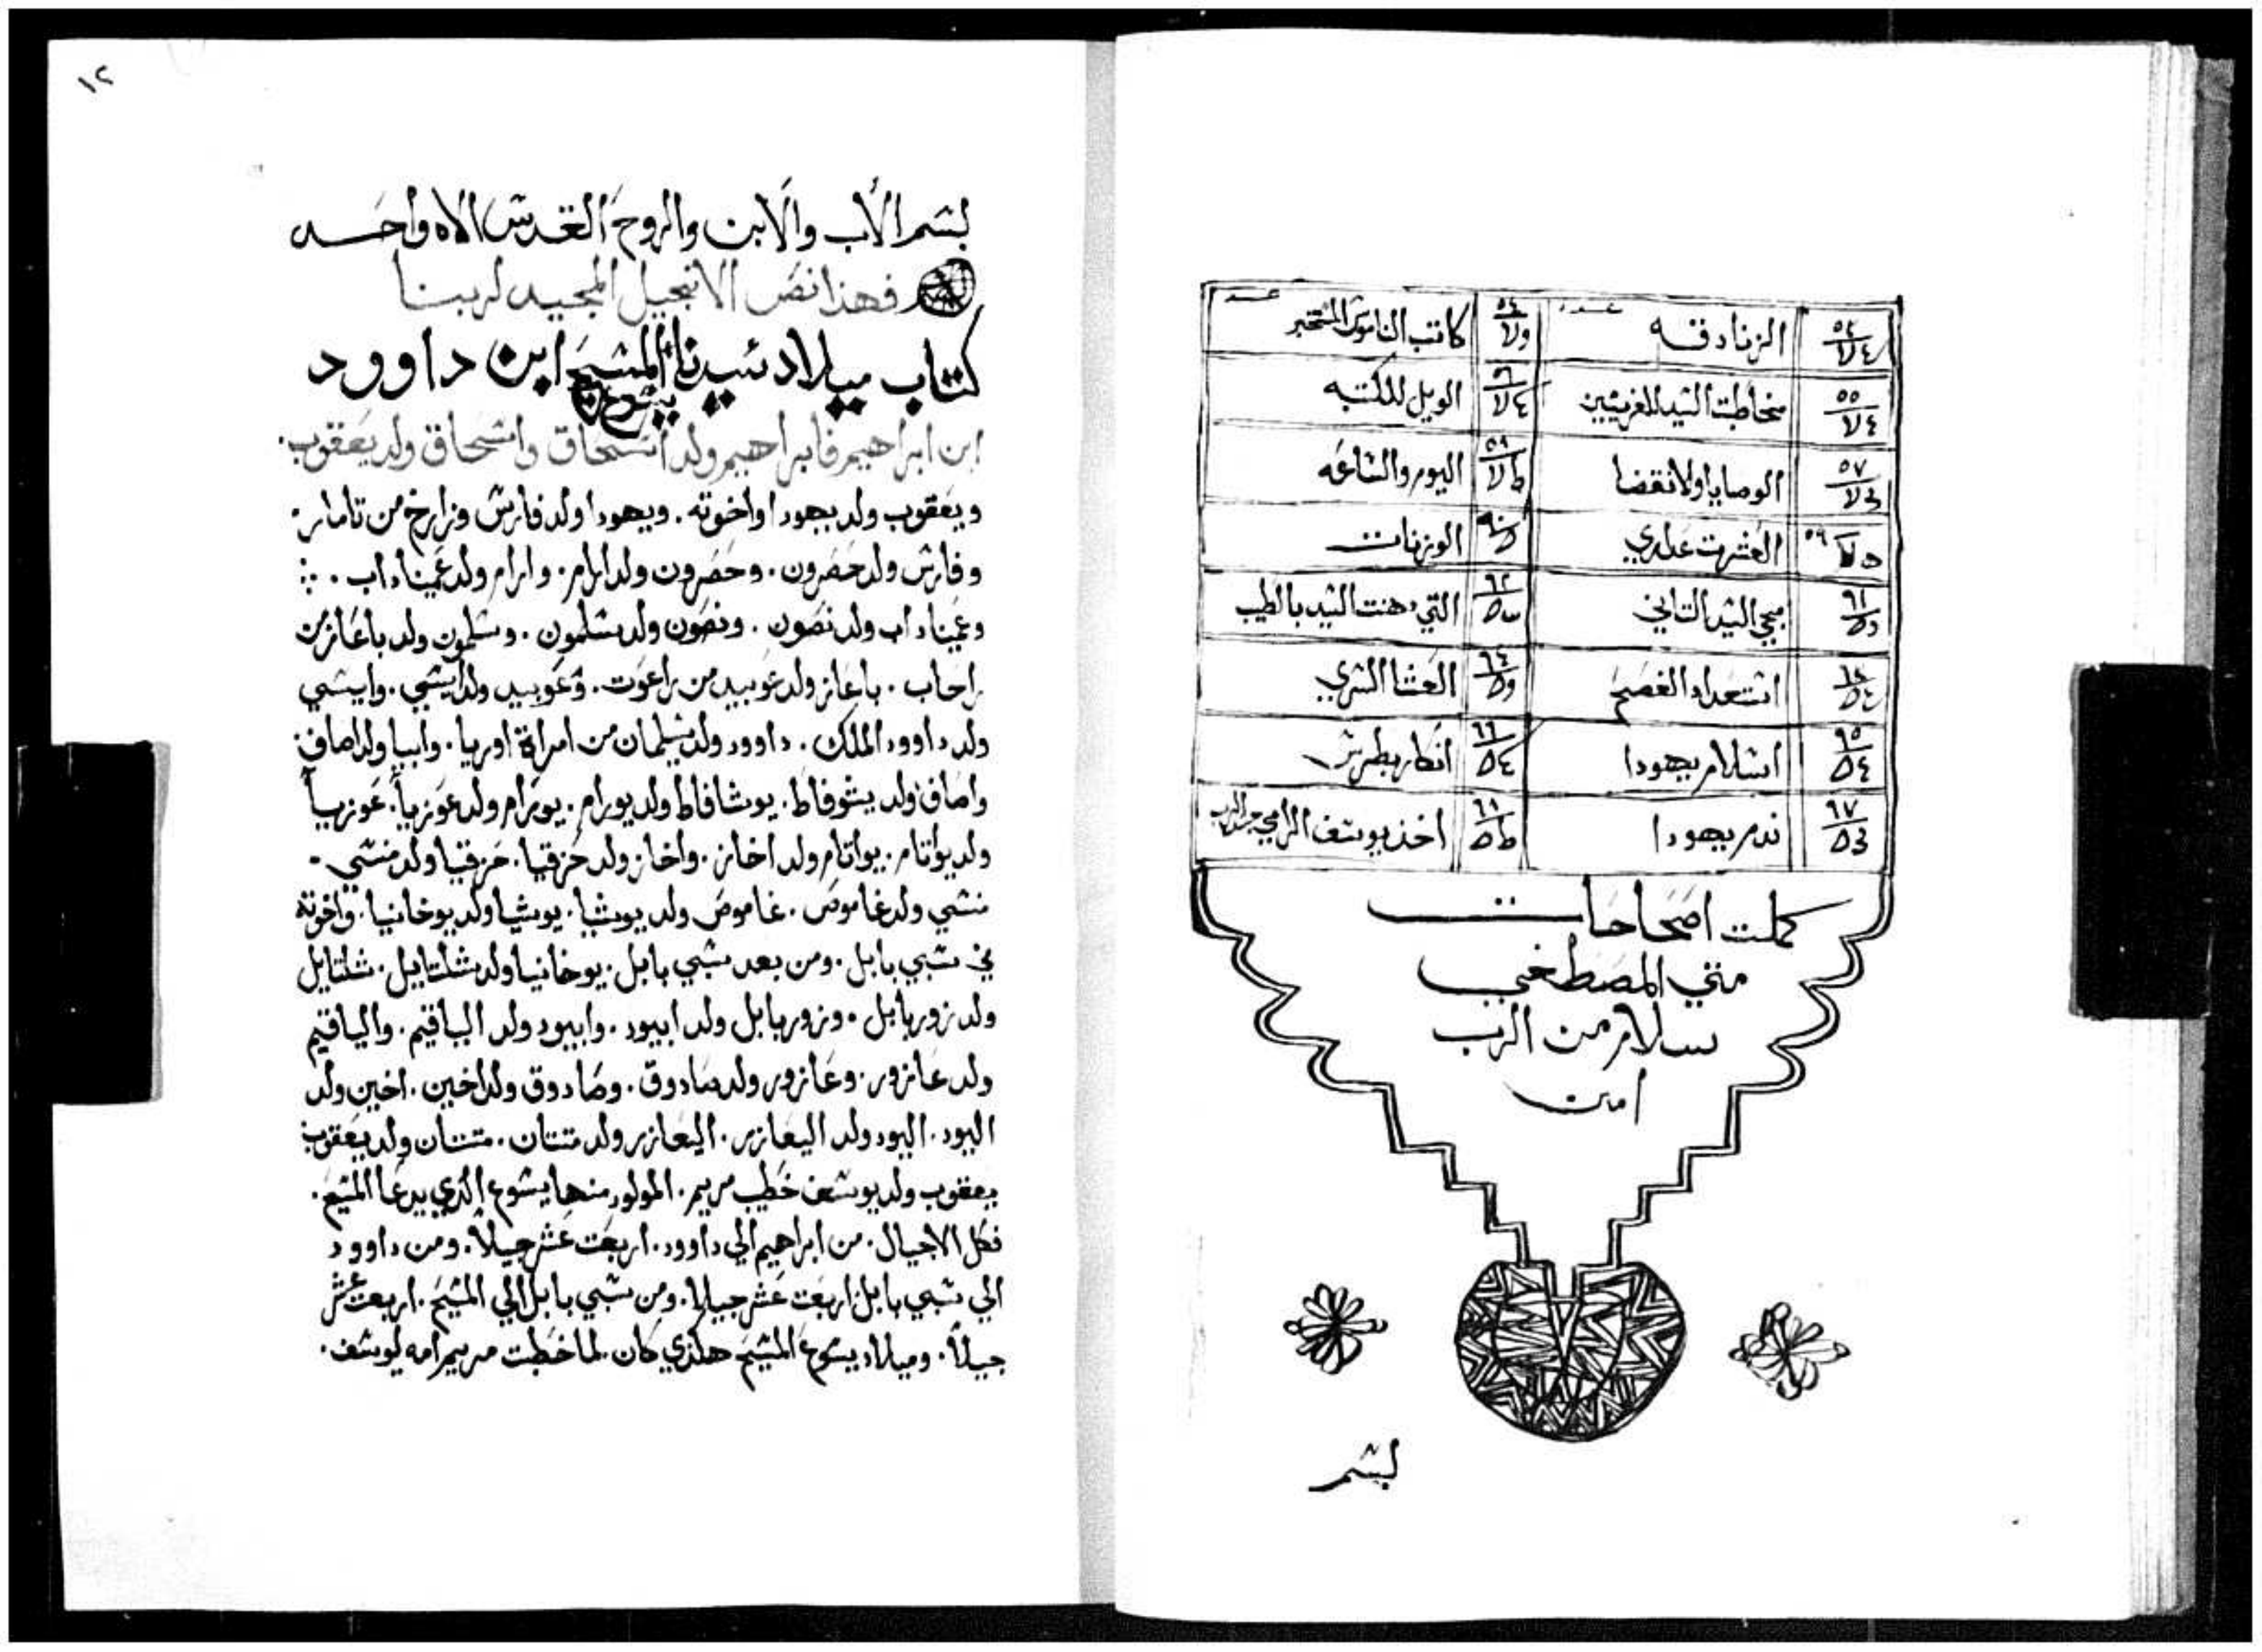 عدد عدد
٥٣ الزنادقه ٥٤ كاتب الناموس المتخبر
٥٥ مخاطبت السيد للفريسيين ٥٦ الويل للكتبه
٥٧ الوصايا ولانقضا ٥٨ اليوم والساعه
٥٩ العشرت عدارى ٦٠ الوزنات
٦١ مجي السيد التاني ٦٢ التي دهنت السيد بالطيب
٦٣ استعداد الفصح ٦٤ العشا السري
٦٥ اسلام يهودا ٦٦ انكار بطرس
٦٧ ندم يهودا ٦٨ اخذ يوسف الرامي جسد الرب
كملت اصحاحات
متي المصطفي
سلام من الرب
امين
بسم
١٢
بسم الأب والابن والروح القدس الاه واحد
فهذا نص الانجيل المجيد لربنا
كتاب ميلاد سيدنا يسوع المسيح ابن داوود
ابن ابراهيم فابراهيم ولد اسحاق واسحاق ولد يعقوب.
ويعقوب ولد يهودا واخوته. ويهودا ولد فارس وزارخ من تامار.
وفارس ولد حصرون. وحصرون ولد ارام. وارام ولد عميناداب.
وعميناداب ولد نصون. ونصون ولد سلمون. وسلمون ولد باعاز من
راحاب. باعاز ولد عوبيد من راعوت. وعوبيد ولد ايسي. وايسي
ولد داوود الملك. داوود ولد سليمان من امراة اوريا. وابيا ولد اصاف
واصاف ولد يشوفاط. يوشافاط ولد يورام. يورام ولد عوزيا. عوزيا
ولد يواتام. يواتام ولد اخاز. واخاز ولد حزقيا. حزقيا ولد منسي.
منسي ولد غاموص. غاموص ولد يوشيا. يوشيا ولد يوخانيا. واخوته
في سبي بابل. ومن بعد سبي بابل. يوخانيا ولد شلتاييل. شلتايل
ولد زوربابل. وزوربابل ولد ابيود. وابيود ولد الياقيم. والياقيم
ولد عازور. وعازور ولد صادوق. وصادوق ولد اخين. اخين ولد
اليود. اليود ولد اليعازر. اليعازر ولد متتان. متتان ولد يعقوب
يعقوب ولد يوسف خطيب مريم. المولود منها يسوع الذي يدعا المسيح.
فكل الاجيال. من ابراهيم الي داوود. اربعت عشر جيلاً. ومن داوود
الي سبي بابل اربعت عشر جيلا. ومن سبي بابل الي المسيح. اربعت عشر
جيلاً. وميلاد يسوع المسيح هكذي كان. لما خطبت مريم امه ليوسف.